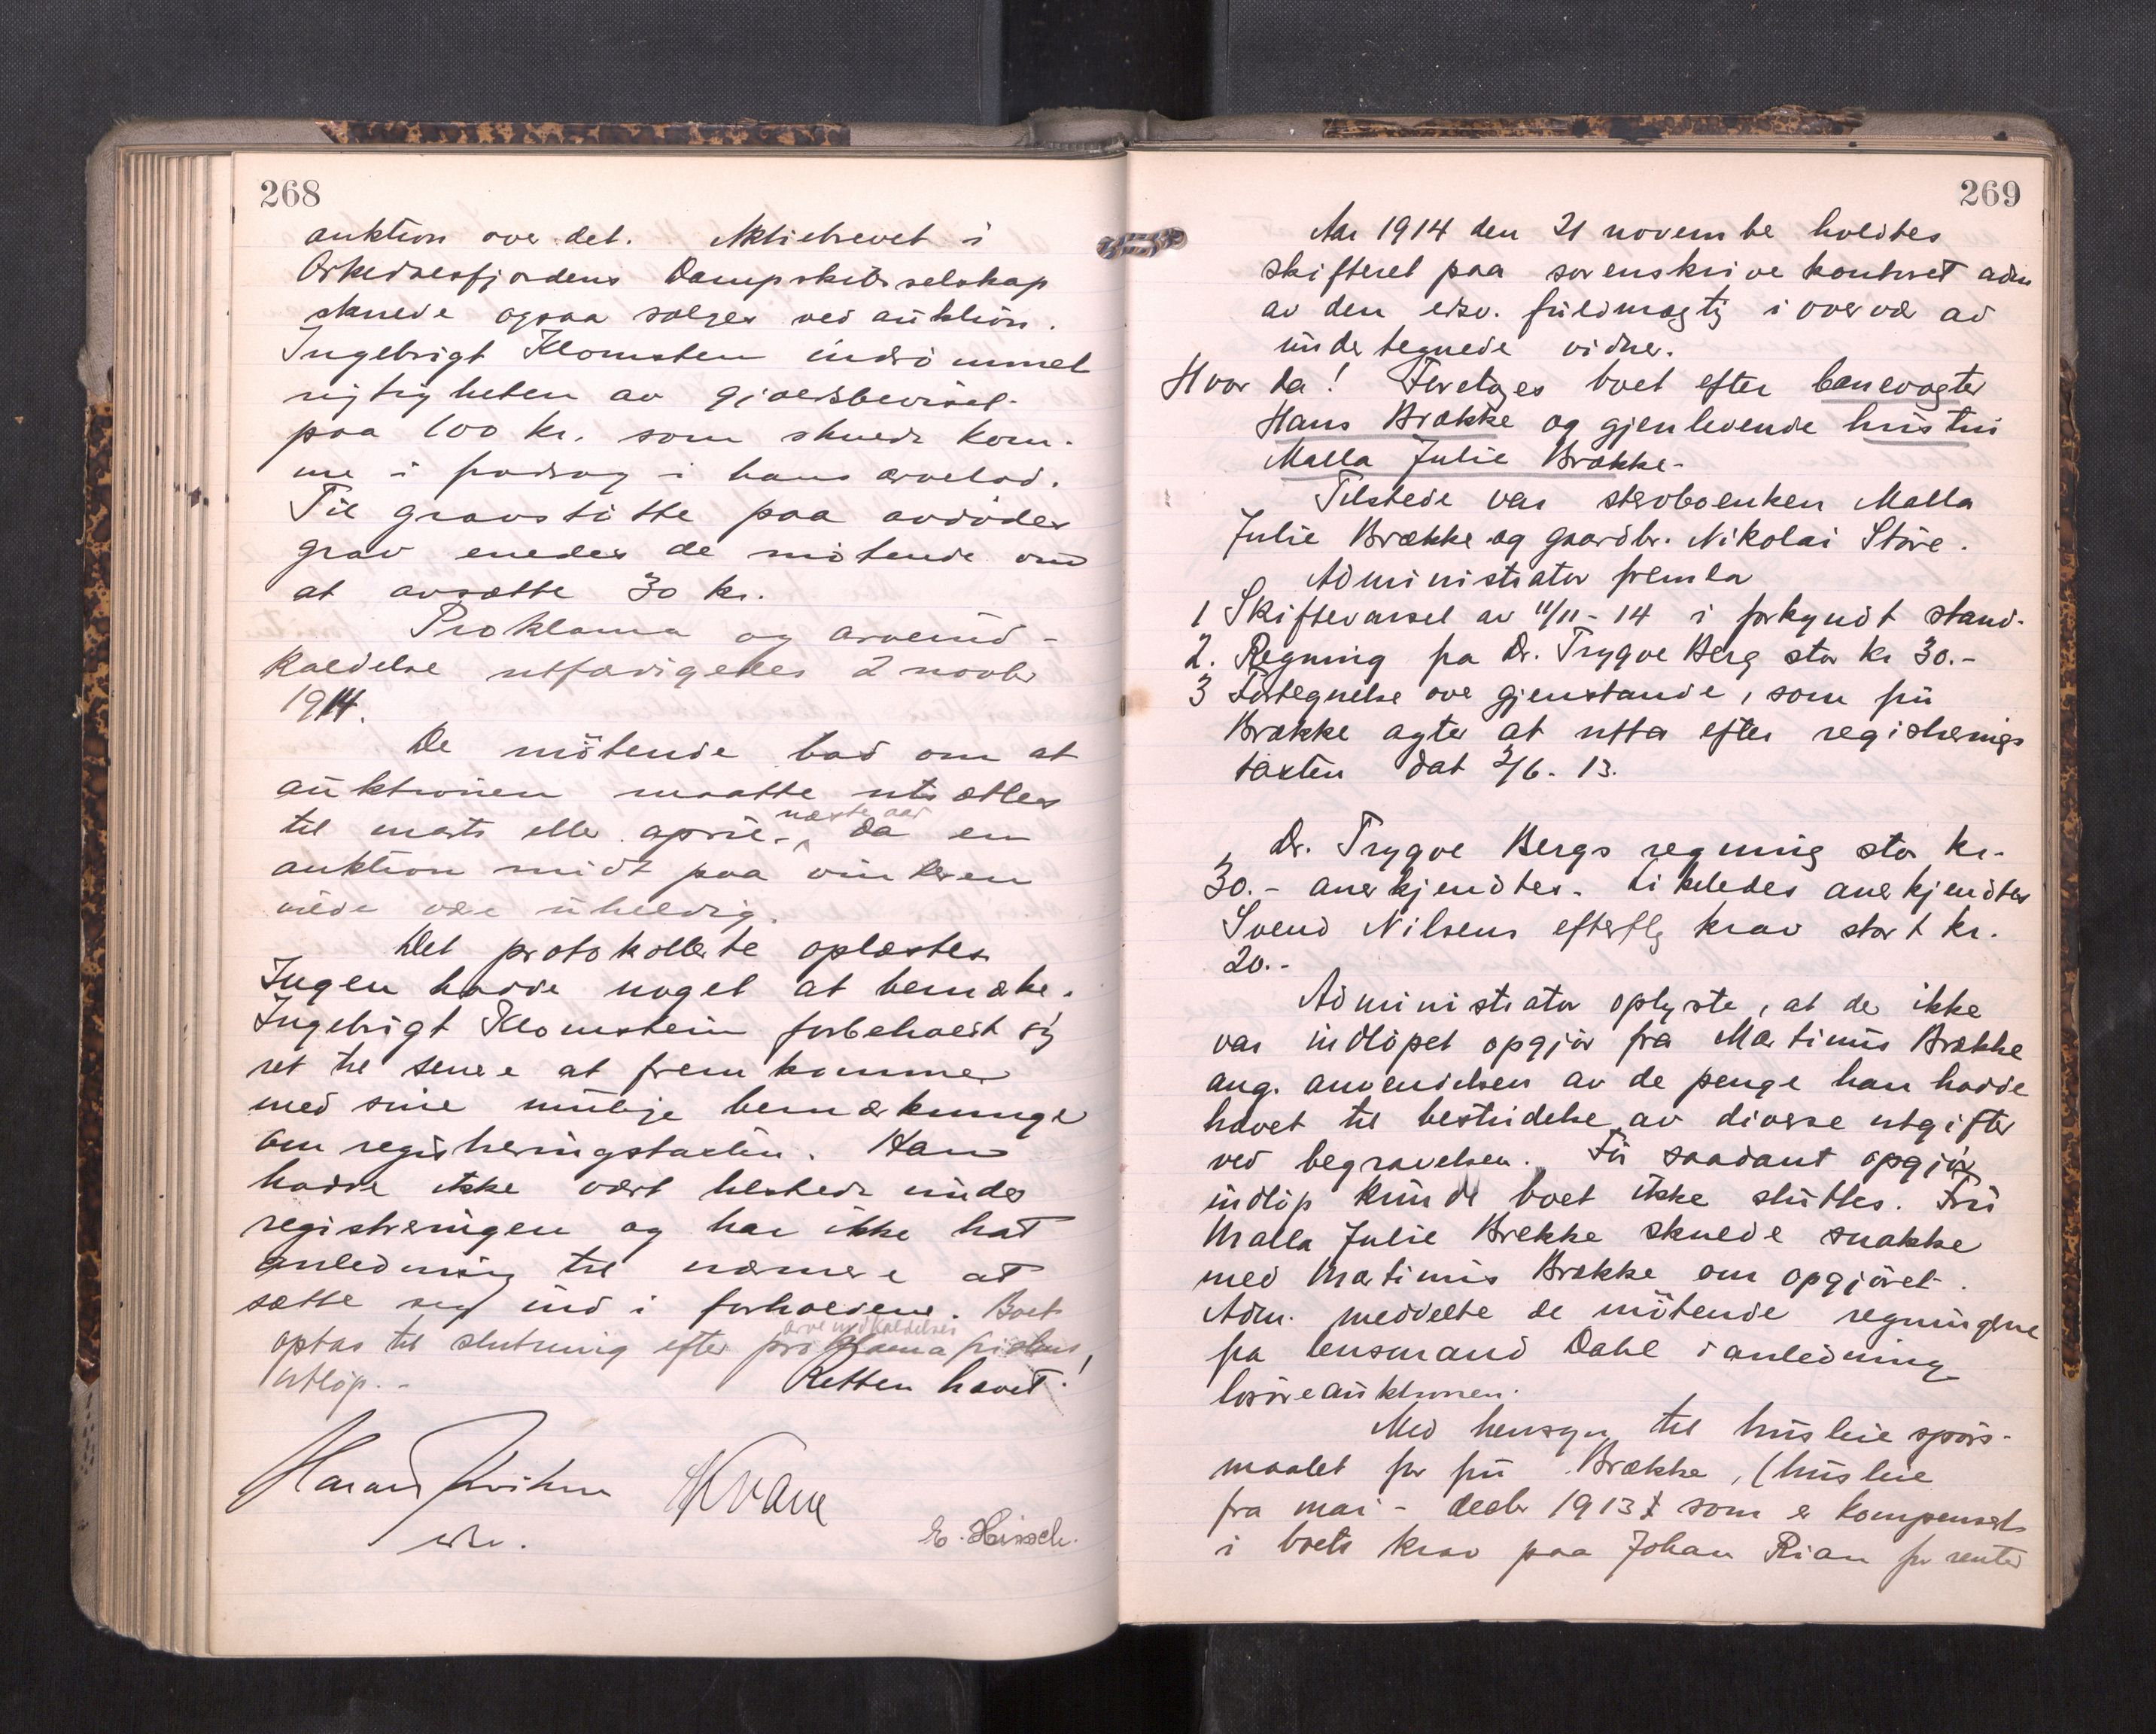 268
auktion over det. Aktiebrevet i
Orkedalsfjordens Dampskibsselskap
skulde ogsaa sælges ved auktion.
Ingebrigt Klomsten indrömmet
rigtigheten av gjældsbeviset
paa 100 kr. som skulde kom-
me i fradrag i hans arvelod.
Til gravstötte paa avdödes
grav enedes de mötende om
at avsætte 30 kr.
Proklama og arveind-
kaldelse utfærdigedes 2 novbr
1914.
De mötende bad om at
auktionen maatte utsættes
til marts eller april næste aar, da en
auktion midt paa vinteren
vilde være uheldig.
Det protokollerte oplæstes.
Ingen hadde noget at bemærke.
Ingebrigt Klomstein forbeholdt sig
ret til senere at fremkomme
med sine mulige bemærkninger
om registreringstaxten. Han
hadde ikke vært tilstede under
registreringen og har ikke hat
anledning til nærmere at
sætte sig ind i forholdene. Boet
arveindkaldelses
optas til slutning efter proklama fristens
utlöp.- Retten hævet!
Harald
E. Hirsch.
269
Aar 1914 den 21 november holdtes
skifteret paa sorenskriverkontoret adm
av den edsv. fuldmægtig i overvær av
undertegnede vidner.
Hvorda! Foretoges boet efter banevogter
Hans Brække og gjenlevende hustru
Malla Julie Brække.
Tilstede var stervboenken Malla
Julie Brække og gaardbr. Nikolai Störe.
Administrator fremla
1 Skiftevarsel av 11/11-14 i forkyndt stand.
2. Regning fra Dr. Trygve Berg stor kr 30.-
3 Fortegnelse over gjenstande, som fru
Brække agter at utta efter registrerings
taxten dat 2/6. 13.
Dr. Trygve Bergs regning stor kr.
30.- anerkjendtes. Likeledes anerkjendtes
Svend Nilsens efterflg krav stort kr.
20.-
Administrator oplyste, at der ikke
var indlöpet opgjör fra Martinus Brække
ang. anvendelsen av de penge han hadde
hævet til bestridelse av diverse utgifter
ved begravelsen. Før saadant opgjör
indlöp kunde boet ikke sluttes. Fru
Malla Julie Brække skulde snakke
med Martinus Brække om opgjöret.
Adm. meddelte de mötende regningene
fra lensmand Dahl i anledning
lösöreauktionen.
Med hensyn til husleiespörs-
maalet for fru Brække, (husleie
fra mai - decbr 1913) som er kompensert
i boets krav paa Johan Rian for renter